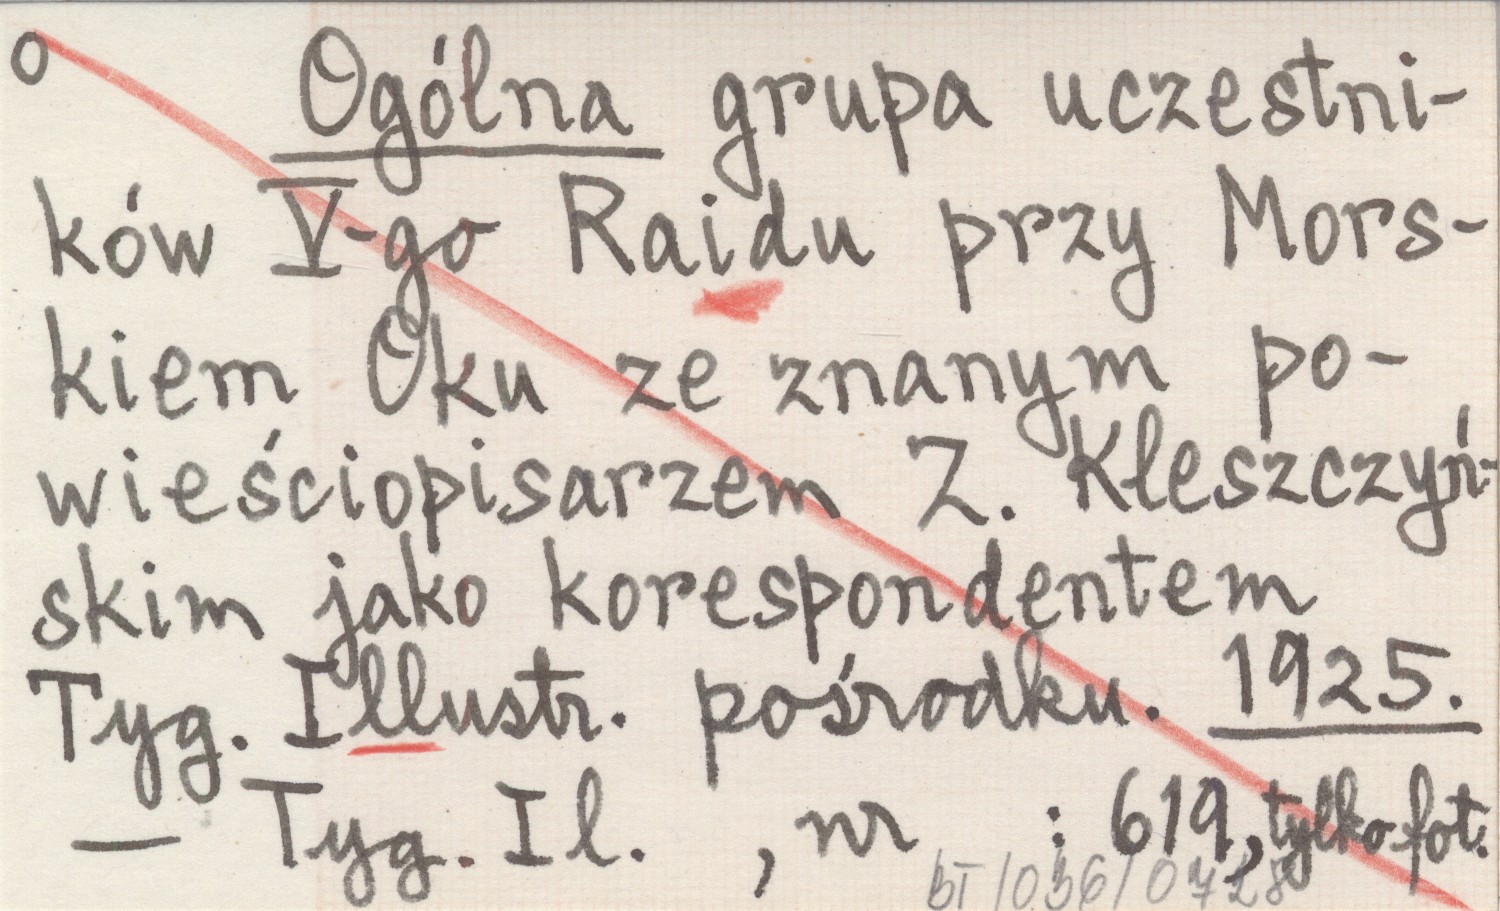 o Ogólna grupa uczestni-
ków V-go Raidu przy Mors-
kiem Oku ze znanym po-
wieściopisarzem Z. Kleszczyń-
skim jako korespondentem
Tyg. Illustr. pośrodku. 1925.
— Tyg. Il. , nr : 619, tylko fot.
BT/036/0728